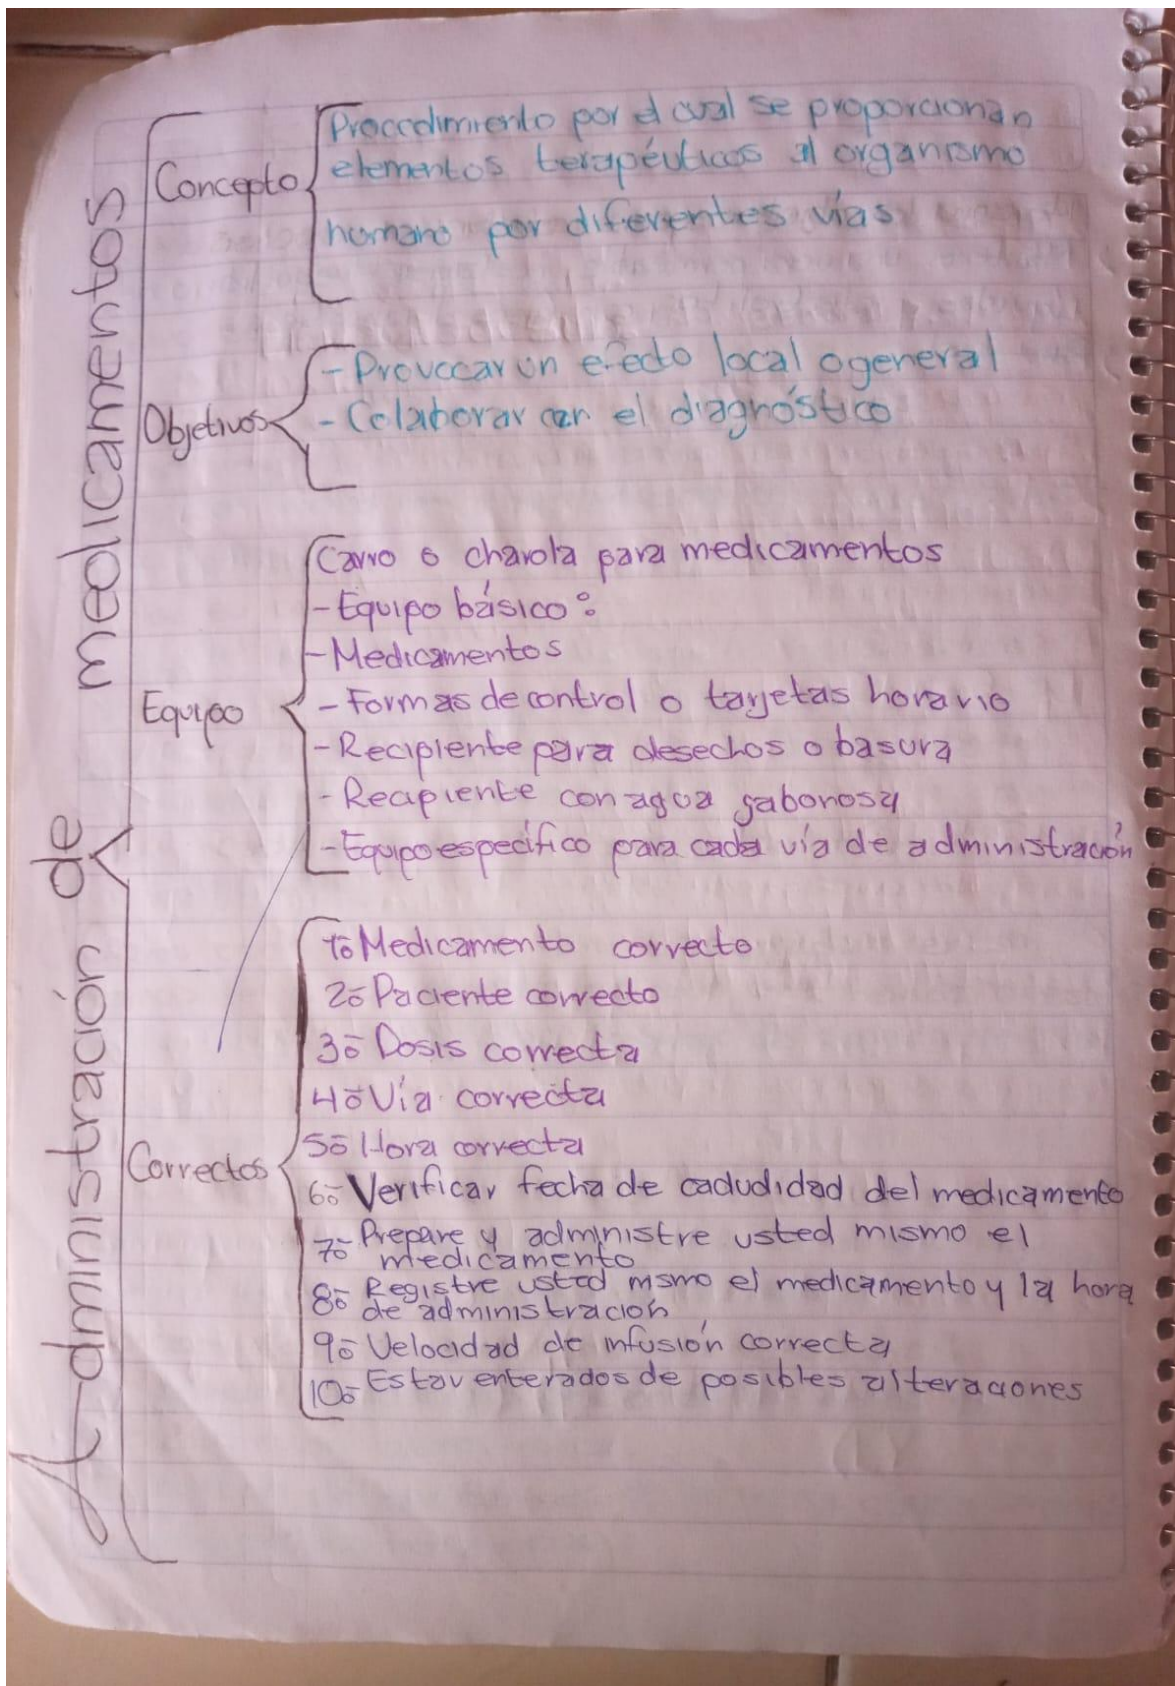 Administración de medicamentos
Concepto
Procedimiento por el cual se proporcionan
elementos terapéuticos al organismo
humano por diferentes vías
Objetivos
- Provocar un efecto local o general
- Colaborar con el diagnóstico
Equipo
Carro o charola para medicamentos
- Equipo básico:
- Medicamentos
- Formas de control o tarjetas horario
- Recipiente para desechos o basura
- Recipiente con agua jabonosa
- Equipo específico para cada vía de administración
Correctos
1o- Medicamento correcto
2o- Paciente correcto
3o- Dosis correcta
4o- Vía correcta
5o- Hora correcta
6o- Verificar fecha de cadudidad del medicamento
7o- Prepare y administre usted mismo el
medicamento
8o- Registre usted msmo el medicamento y la hora
de administración
9o- Velocidad de infusión correcta
10o- Estar enterados de posibles alteraciones